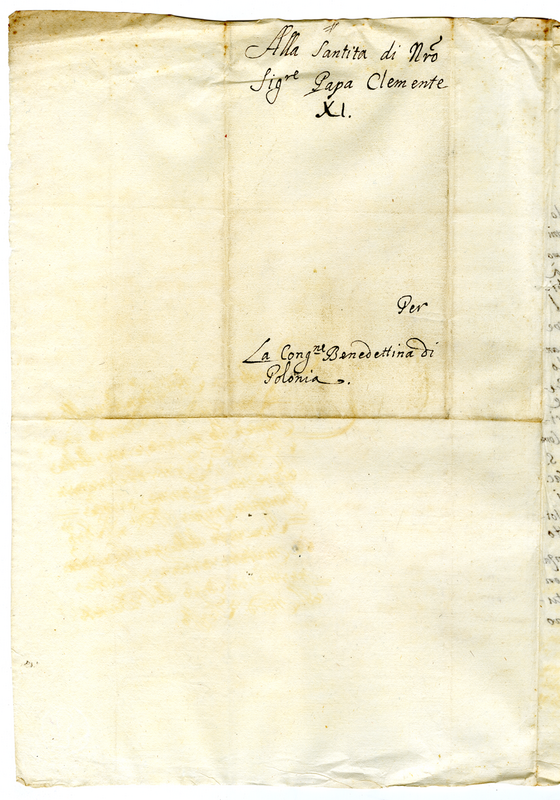 Alla Santita di Nrõ
Sigre Papa Clemente
XI.
Per
La Congne Benedettina di
Polonia.